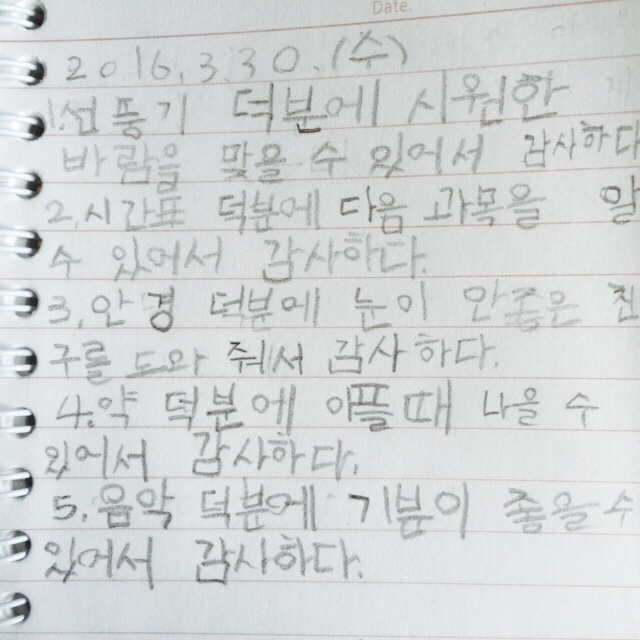 Date.
2016.3.30.(수)
1.선풍기 덕분에 시원한
바람을 맞을 수 있어서 감사하다
2.시간표 덕분에 다음 과목을 알
수 있어서 감사하다.
3.안경 덕분에 눈이 안좋은 친
구를 도와 줘서 감사하다.
4.약 덕분에 아플때 나을 수
있어서 감사하다.
5.음악 덕분에 기분이 좋을수
있어서 감사하다.